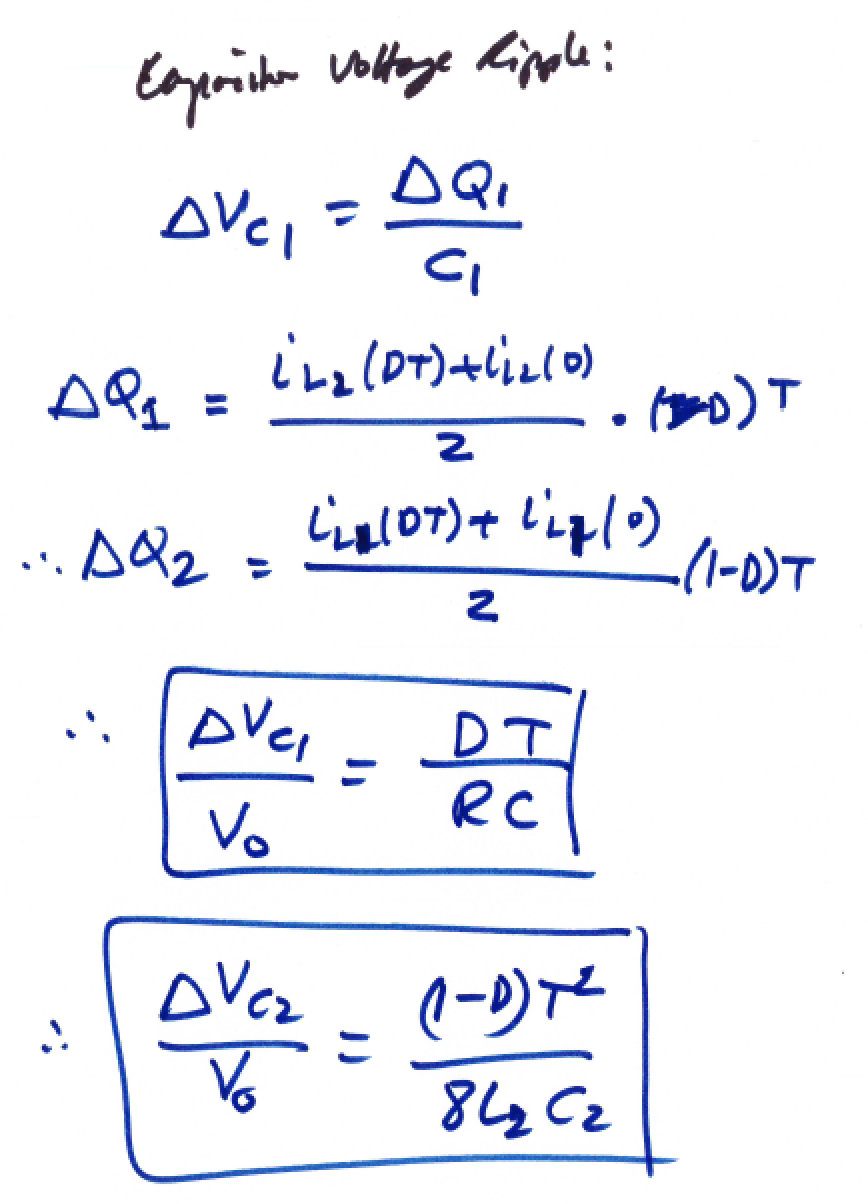 Capacitor Voltage Ripple:
ΔV_C1 = ΔQ_1 / C_1
ΔQ_1 = (i_L2(DT) + i_L2(0)) / 2 · D)T
∴ ΔQ_2 = (i_L1(DT) + i_L1(0)) / 2 (1-D)T
∴ ΔV_C1 / V_o = DT / RC
∴ ΔV_C2 / V_o = (1-D)T^2 / 8L_2C_2